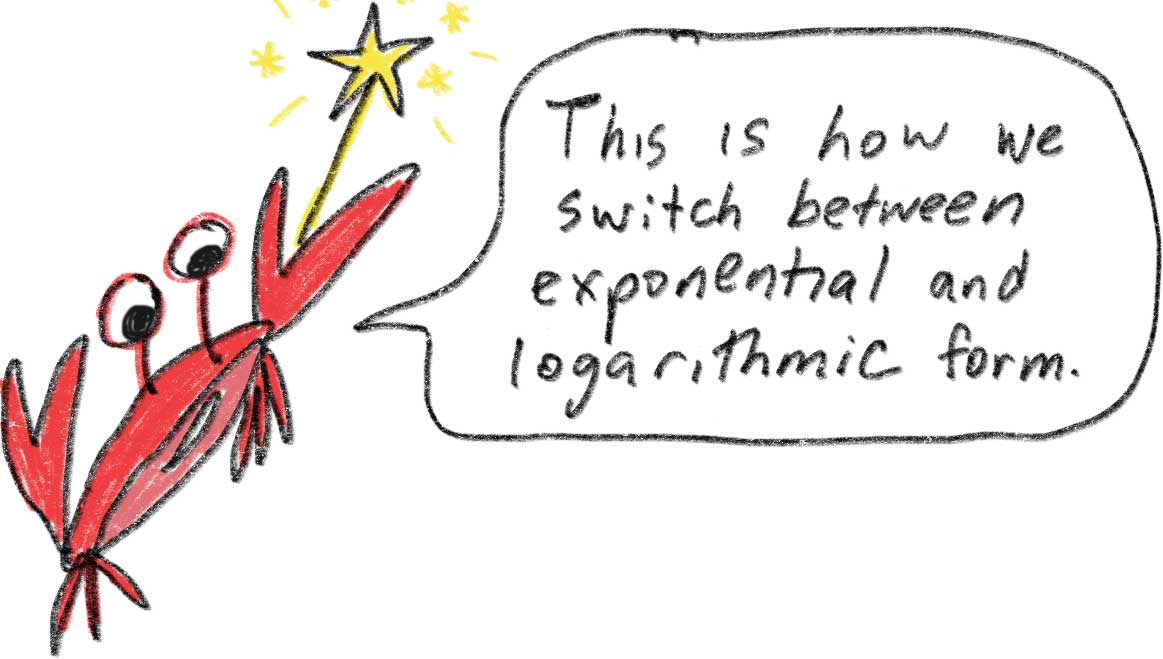 This is how we
switch between
exponential and
logarithmic form.